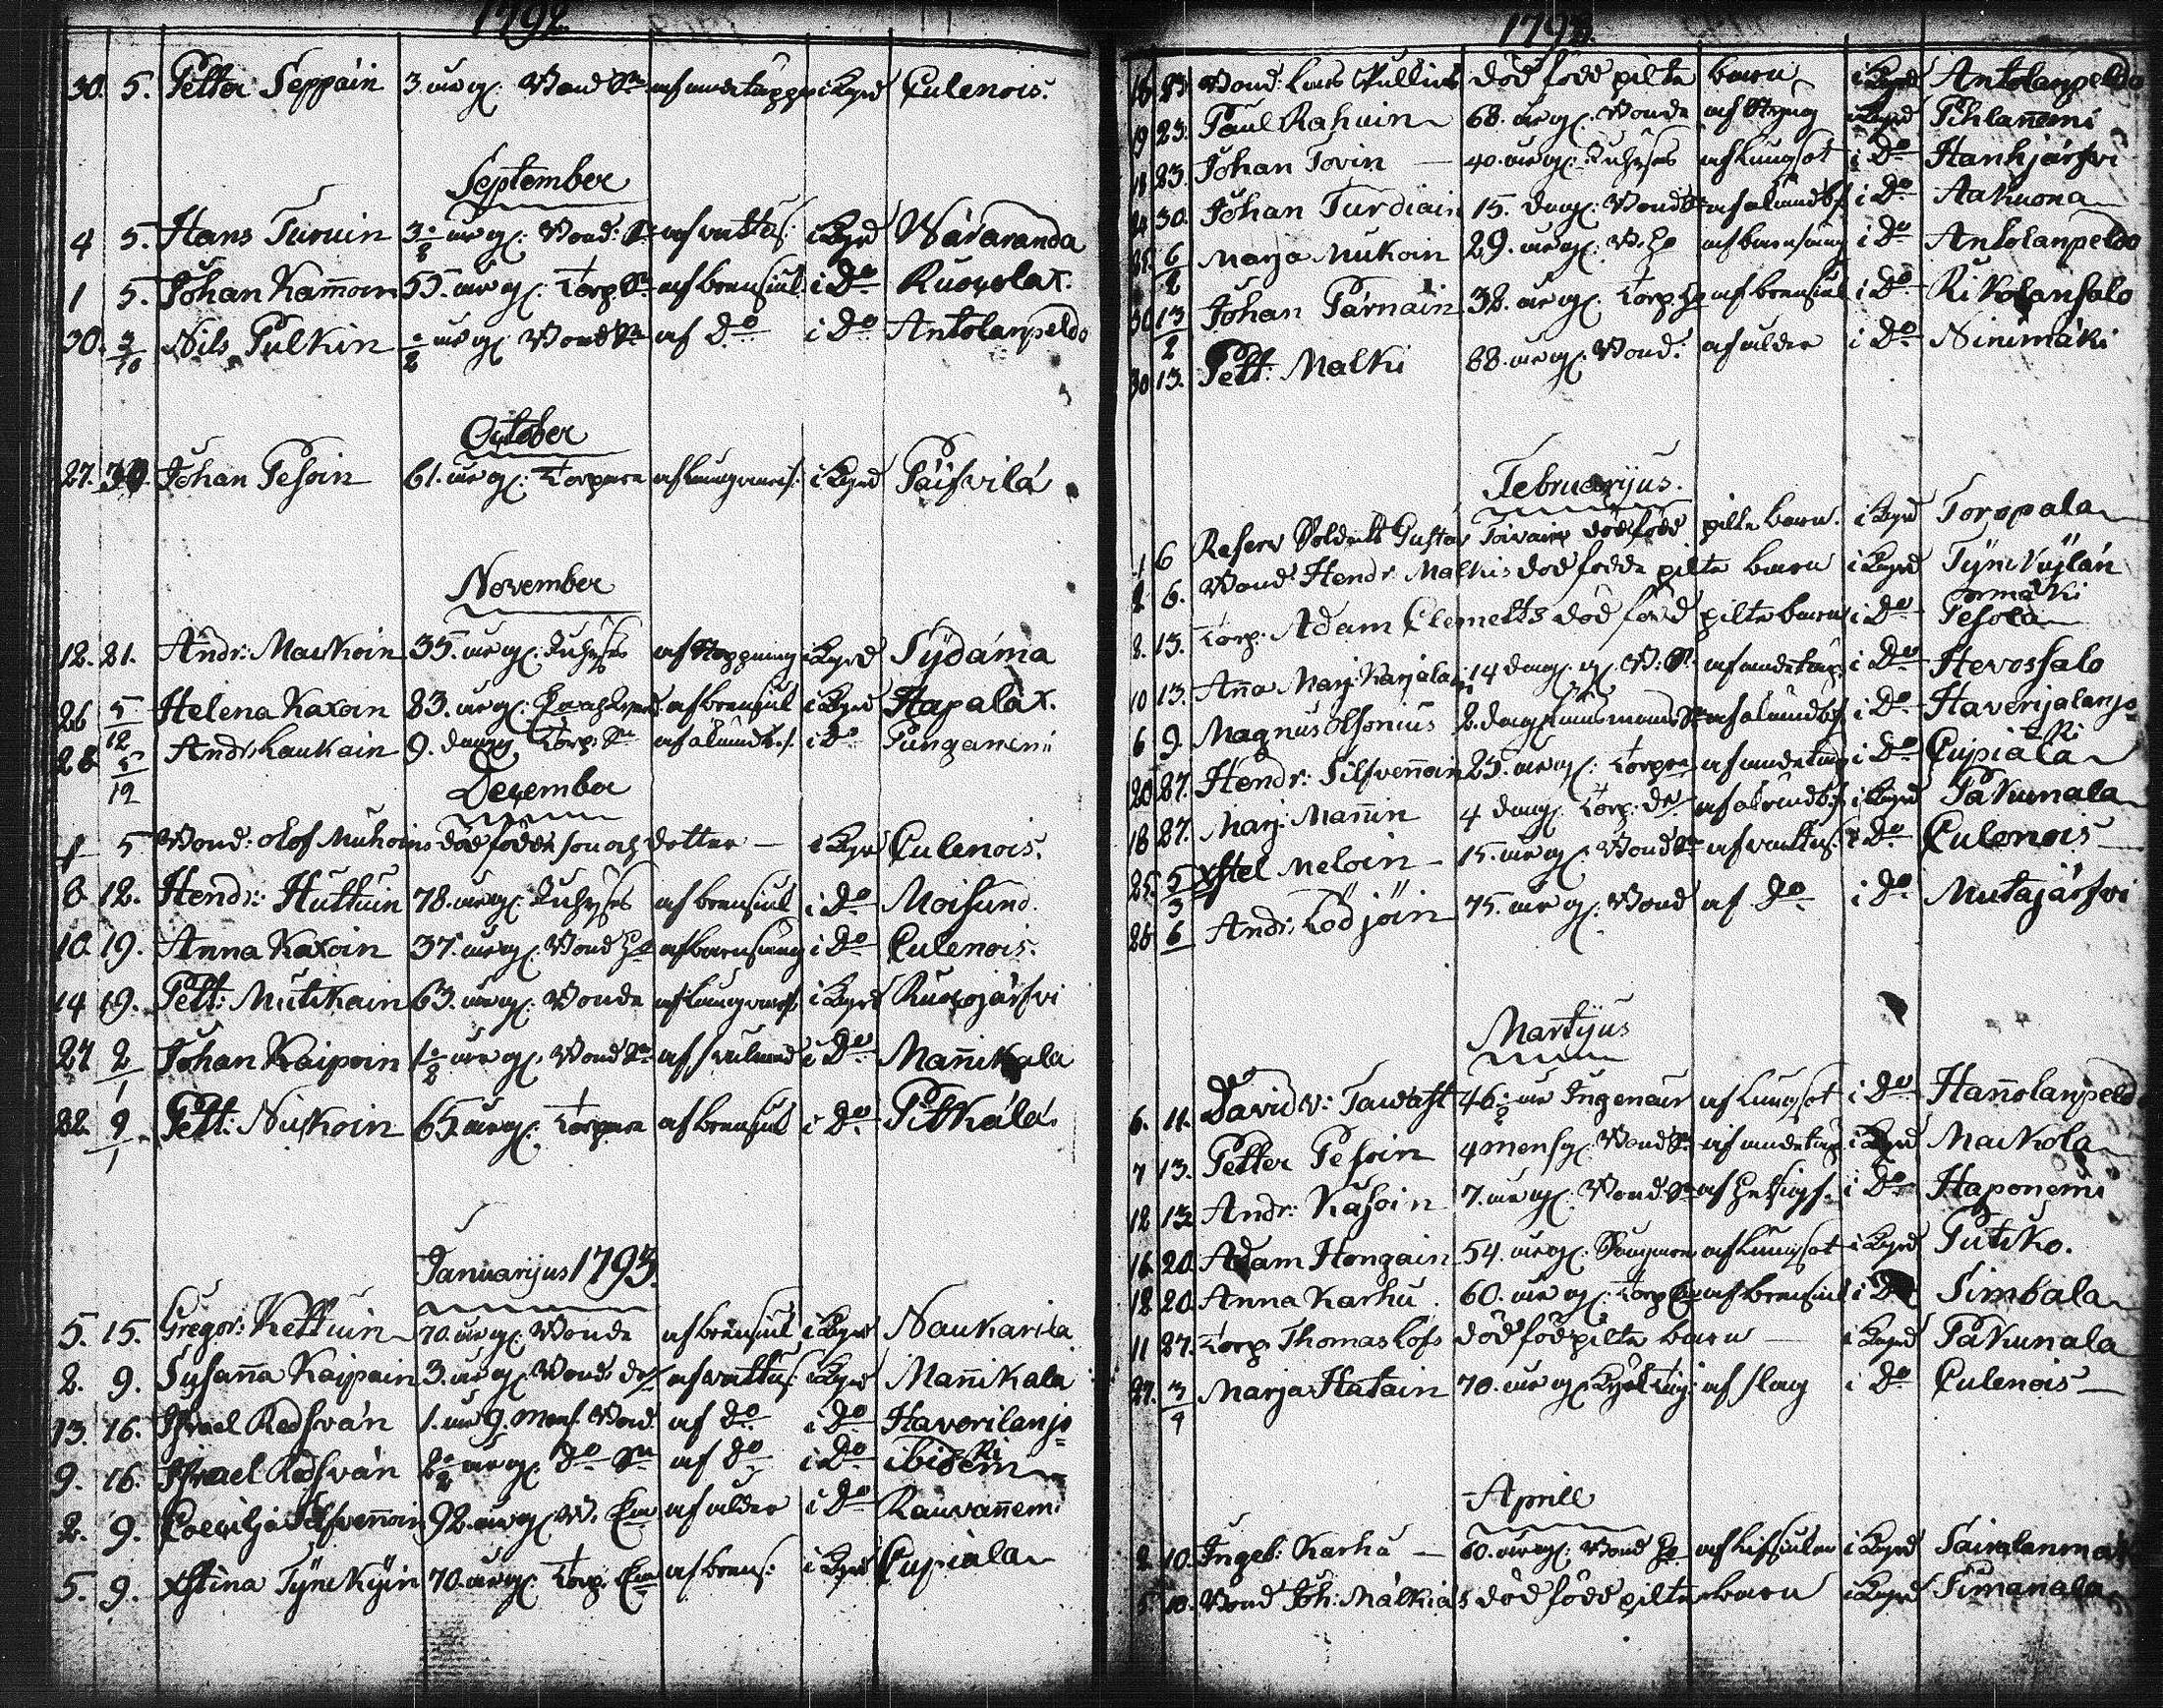 1792
30. 5. Petter Seppäin 3 år g. Bond Sn af andetäppa i Byn Culenois.
September
4 5. Hans Turuin 3 1/2 år g. Bond: Sn af rattus: i Byn Wäräranda
1 5. Johan Kam̄oin 55. år g. Torp. Sn af brensiuk i Do Ruokolax.
30. 3/10 Nils Pulkin 1/2 år g. Bond Sn af Do i Do Antolanpeldo
October
27. 30. Johan Pesoin 61. år g: Torpare af Langvaris: i Byn Päisvilä
November
12. 21. Andr: Maukoin 35. år g. Inhyses af Stoppning i Byn Sydänia
26 5/12 Helena Kaxoin 83. år g: af brensiuk i Byn Hapalax.
28 5/12 Andr: Laukain 9. dag g. Torp: Sn af okändt. s. i Do Punganemi
December
4 5 Bond: Olof Muhoins dödfödde son och dotter — i Byn Culenois.
8 12. Hendr: Huttuin 78. år g. Inhyses af brensiuk i Do Moisund.
10. 19. Anna Kaxoin 37. år g. Bond Ho af barnsäng i Do Culenois.
14 19. Pett: Mutikain 63. år g: Bonde af Langvaris i Byn Ruokojärfvi
27 2/1 Johan Kaipoin 1 1/2 år g. Bond Sn af svulnad i Do Man̄ikala
22. 9/1 Pett: Niskoin 65. år g. Torpare af brensiuk i Do Pitkälä.
Januarijus 1793.
5. 15. Gregor: Kettuin 70. år g. Bonde af brensiuk i Byn Naukarila
2. 9. Susan̄a Kaipain 3. år g. Bonde dr af rattus: i Byn Man̄ikala
13. 16. Israel Redsvän 1. år 9. Mons. Bond. af do i Do Haverilanjo=
9. 16. Israel Redsvän 2 1/2 år g. do Sn af do i Do ibidem
2. 9. Coecilja Silfven̄oin 92. år g. B. Enk af ålder i Do Rauvan̄emi
5. 9. Xstina Tynckyin 70. år g. Torp. Enk af brens: i Byn Cupiala
1793.
18. 23. Bond: Lars Pullius död född pilte barn i Byn Antolanpeldo
19 23. Paul Rahuin 68. år g: Bonde af Styng i Byn Pihlan̄emi
18 23. Johan Tovin — 40. år g: Inhyses af Lungsot i Do Hanhjärfvi
24 30. Johan Turdiain 15. dag: Bond Sn af okändt s. i Do Aakuona
25. 6/2 Marja Mukoin 29. år g. B. Ho af barnsäng i Do Antolanpeldo
30 13/2 Johan Pärnäin 38. år g: Torp. Ho af brensiuk i Do Rikolansalo
30 13. Pett: Malki 88. år g: Bond. af ålder i Do Ninimäki
Februarijus.
1 6 Reserv Soldats Gustav Toivain dödfödd pilte barn. i Byn Toropala
2 6. Bond Hendr: Malkis död födde pilte barn i Byn Tynkylän
ormäki
8. 13. Torp: Adam Clemetts död född pilte barn i Do Pesola
10 13. An̄a Marj: Karjalain 14 dag: g. B: dr af andetäp. i Do Hevossalo
6 9. Magnus Olsonius 2. dag: Sn af okändt s. i Do Haverijalanjo=
20 27. Hendr: Silfven̄oin 25. år g: Torpare af andetäp i Do Cupiala
18 27. Marj: Man̄in 4 dag: Torp: dr af okändt s. i Byn Pakunala
25. 5/3 Xstel Meloin 15. år g: Bond Sn af rattus: i Do Culenois
26 6 Andr: Lödjöin 75. år g: Bond af Do i Do Mutajärfvi
Martijus
6. 11. David v: Tawast 46 1/2 år Ingeneur af Lungsot i Do Han̄olanpeldo
7 13. Petter Pesoin 4 mons g: Bond Sn af andetäp i Byn Maukola
12 13. Andr: Kasoin 7. år g: Bond Sn af Hetsigf. i Do Haponemi
16 20. Adam Hongain 54. år g: af Lungsot i Byn Putiko.
12 20. Anna Karhu. 60. år g: Torp af brensiuk i Do Simbala
11 27. Torp: Thomas Lofs död född pilte barn — i Byn Pakunala
27. 3/4 Marja Hatain 70. år g af slag i Do Culenois
Aprill
2 10. Ingeb: Karhu — 60. år g: Bond Ho i Byn Sairalanmäk
5. 10. Bond Joh: Mälkiäs död född pilte barn i Byn Simanala